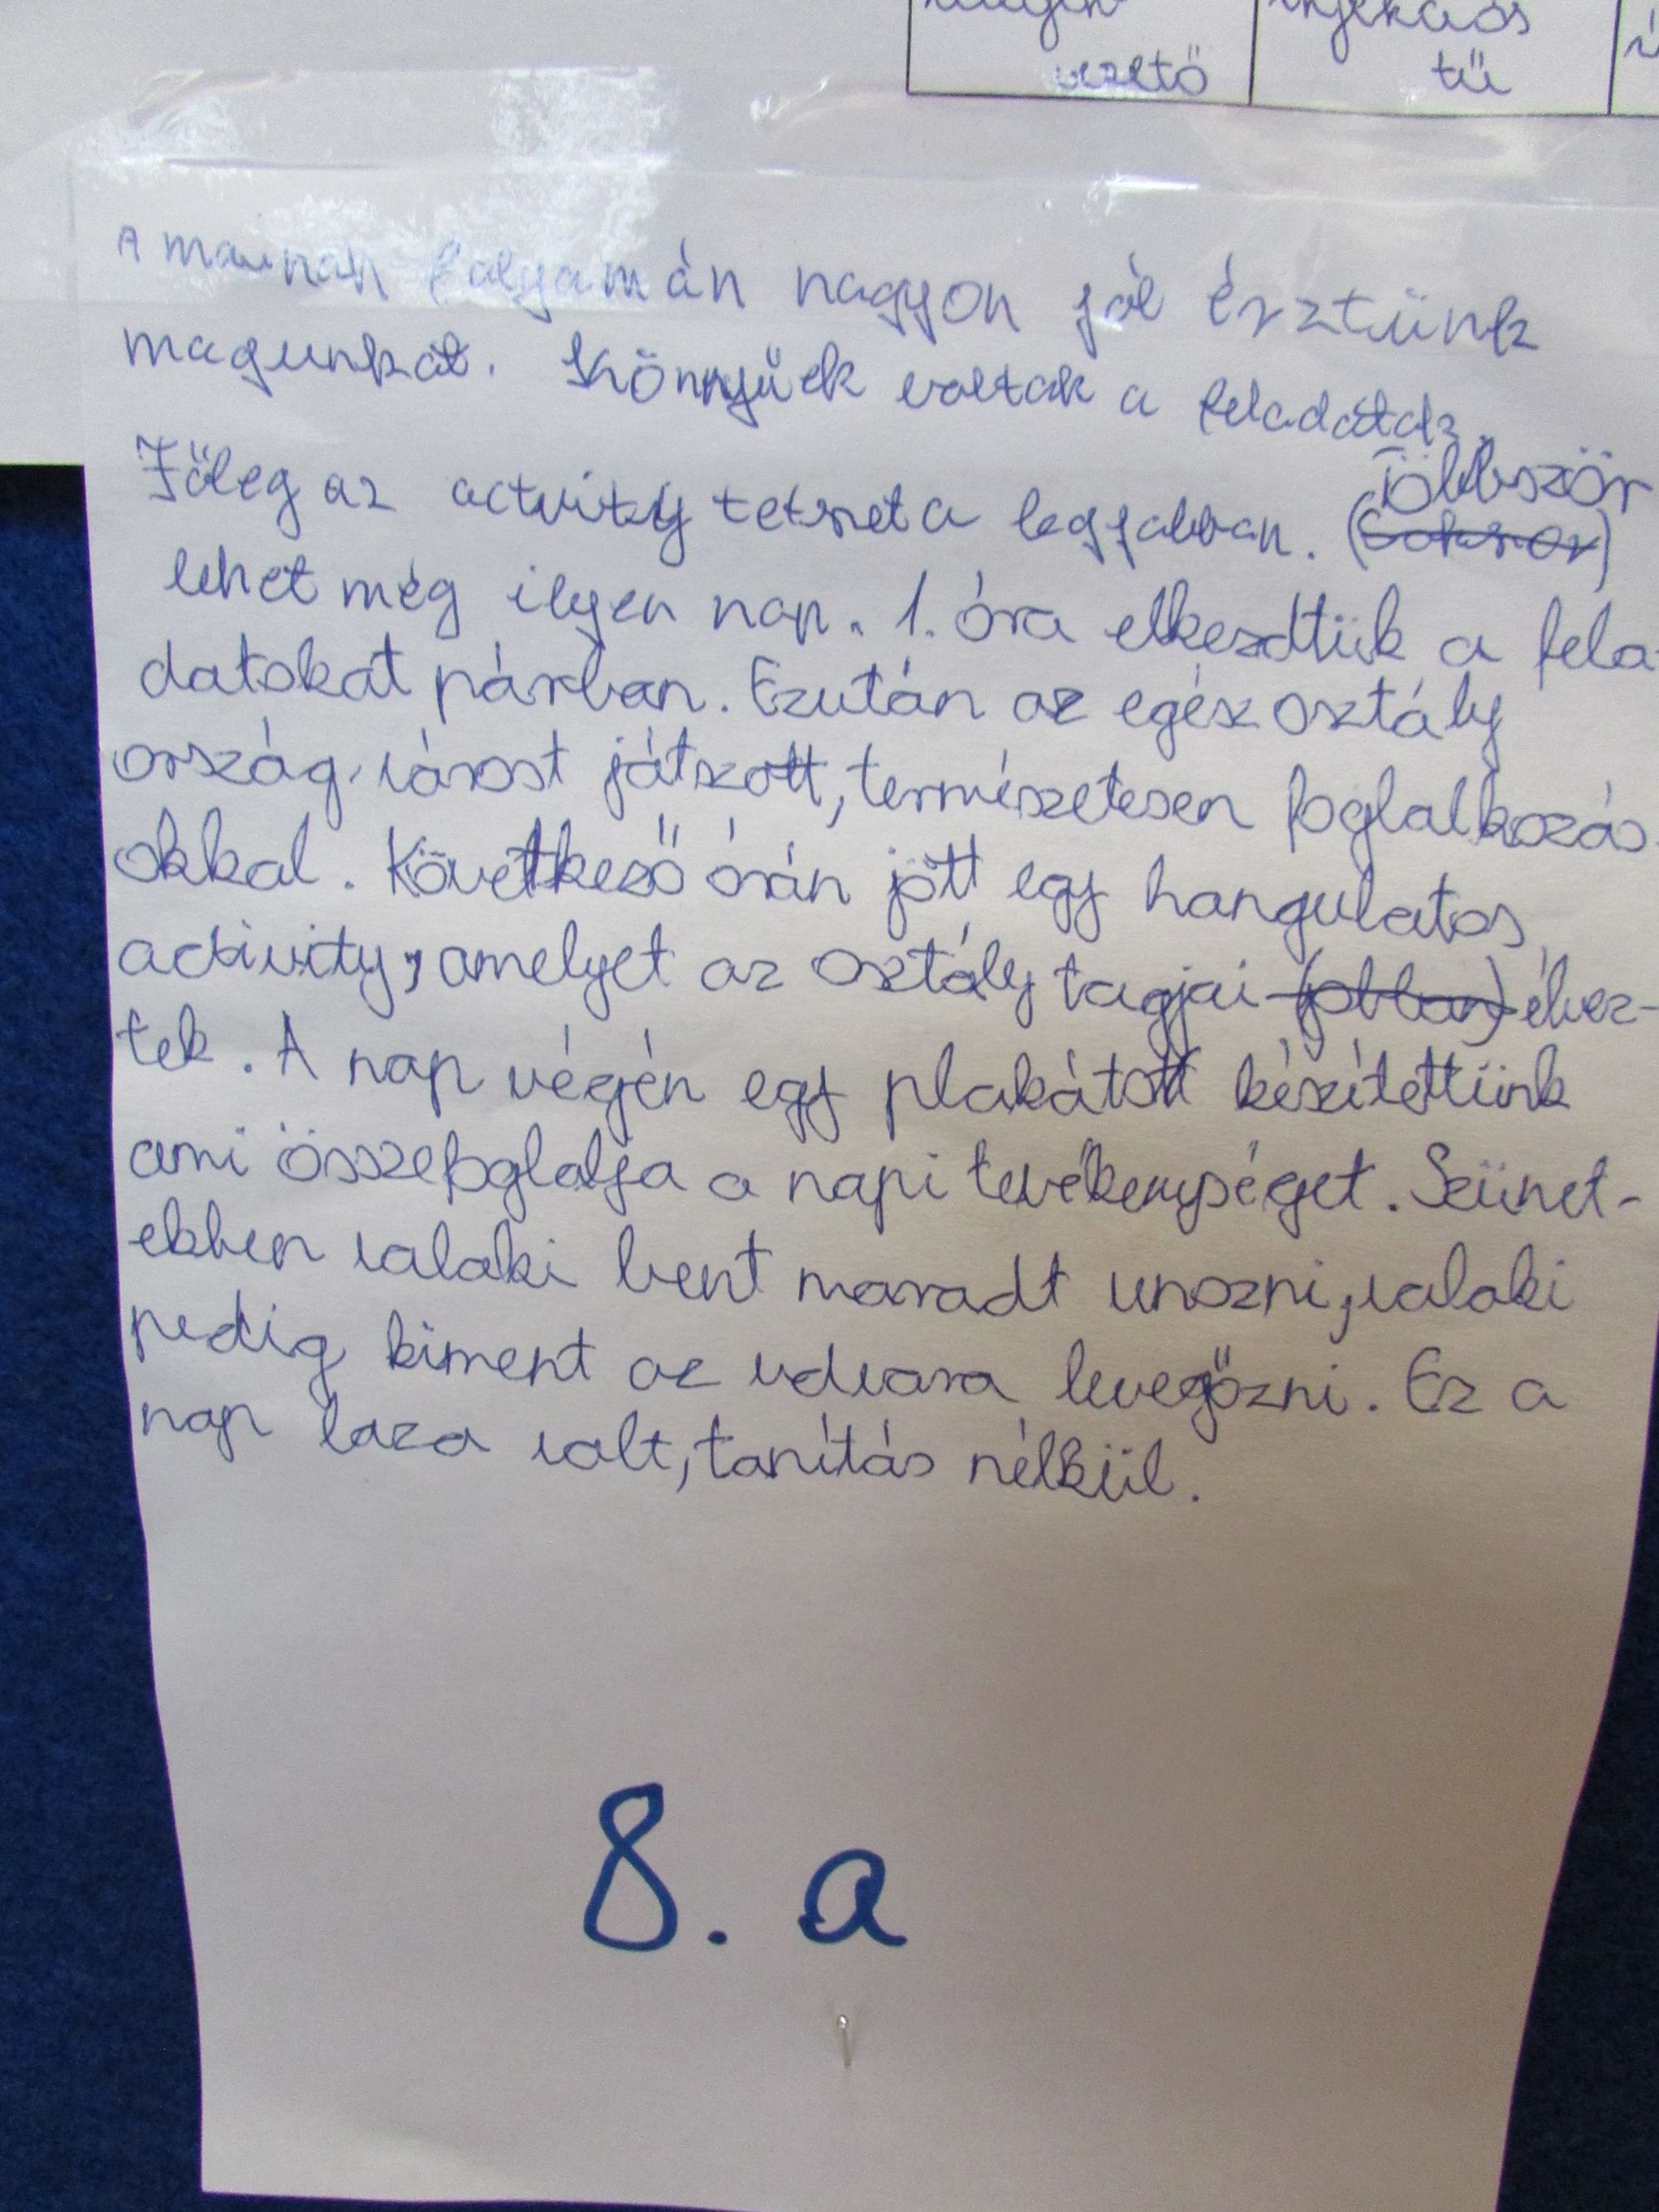 vezető
injekciós
tű
A mainap folyamán nagyon jól érztünk
magunkat. Könnyűek voltak a feladatok.
Főleg az actvity tetszet a legjobban. Többször
(Sokszor)
lehet még ilyen nap. 1. óra elkezdtük a fela-
datokat párban. Ezután az egész osztály
ország-várost játszott, természetesen foglalkozás-
okkal. Következő órán jött egy hangulatos
activity, amelyet az osztály tagjai (jobban) élvez-
tek. A nap végén egy plakátott készítettünk
ami összefoglalja a napi tevékenységet. Szünet-
ekben valaki bent maradt unozni, valaki
pedig kiment az udvara levegőzni. Ez a
nap laza volt, tanítás nélkül.
8. a